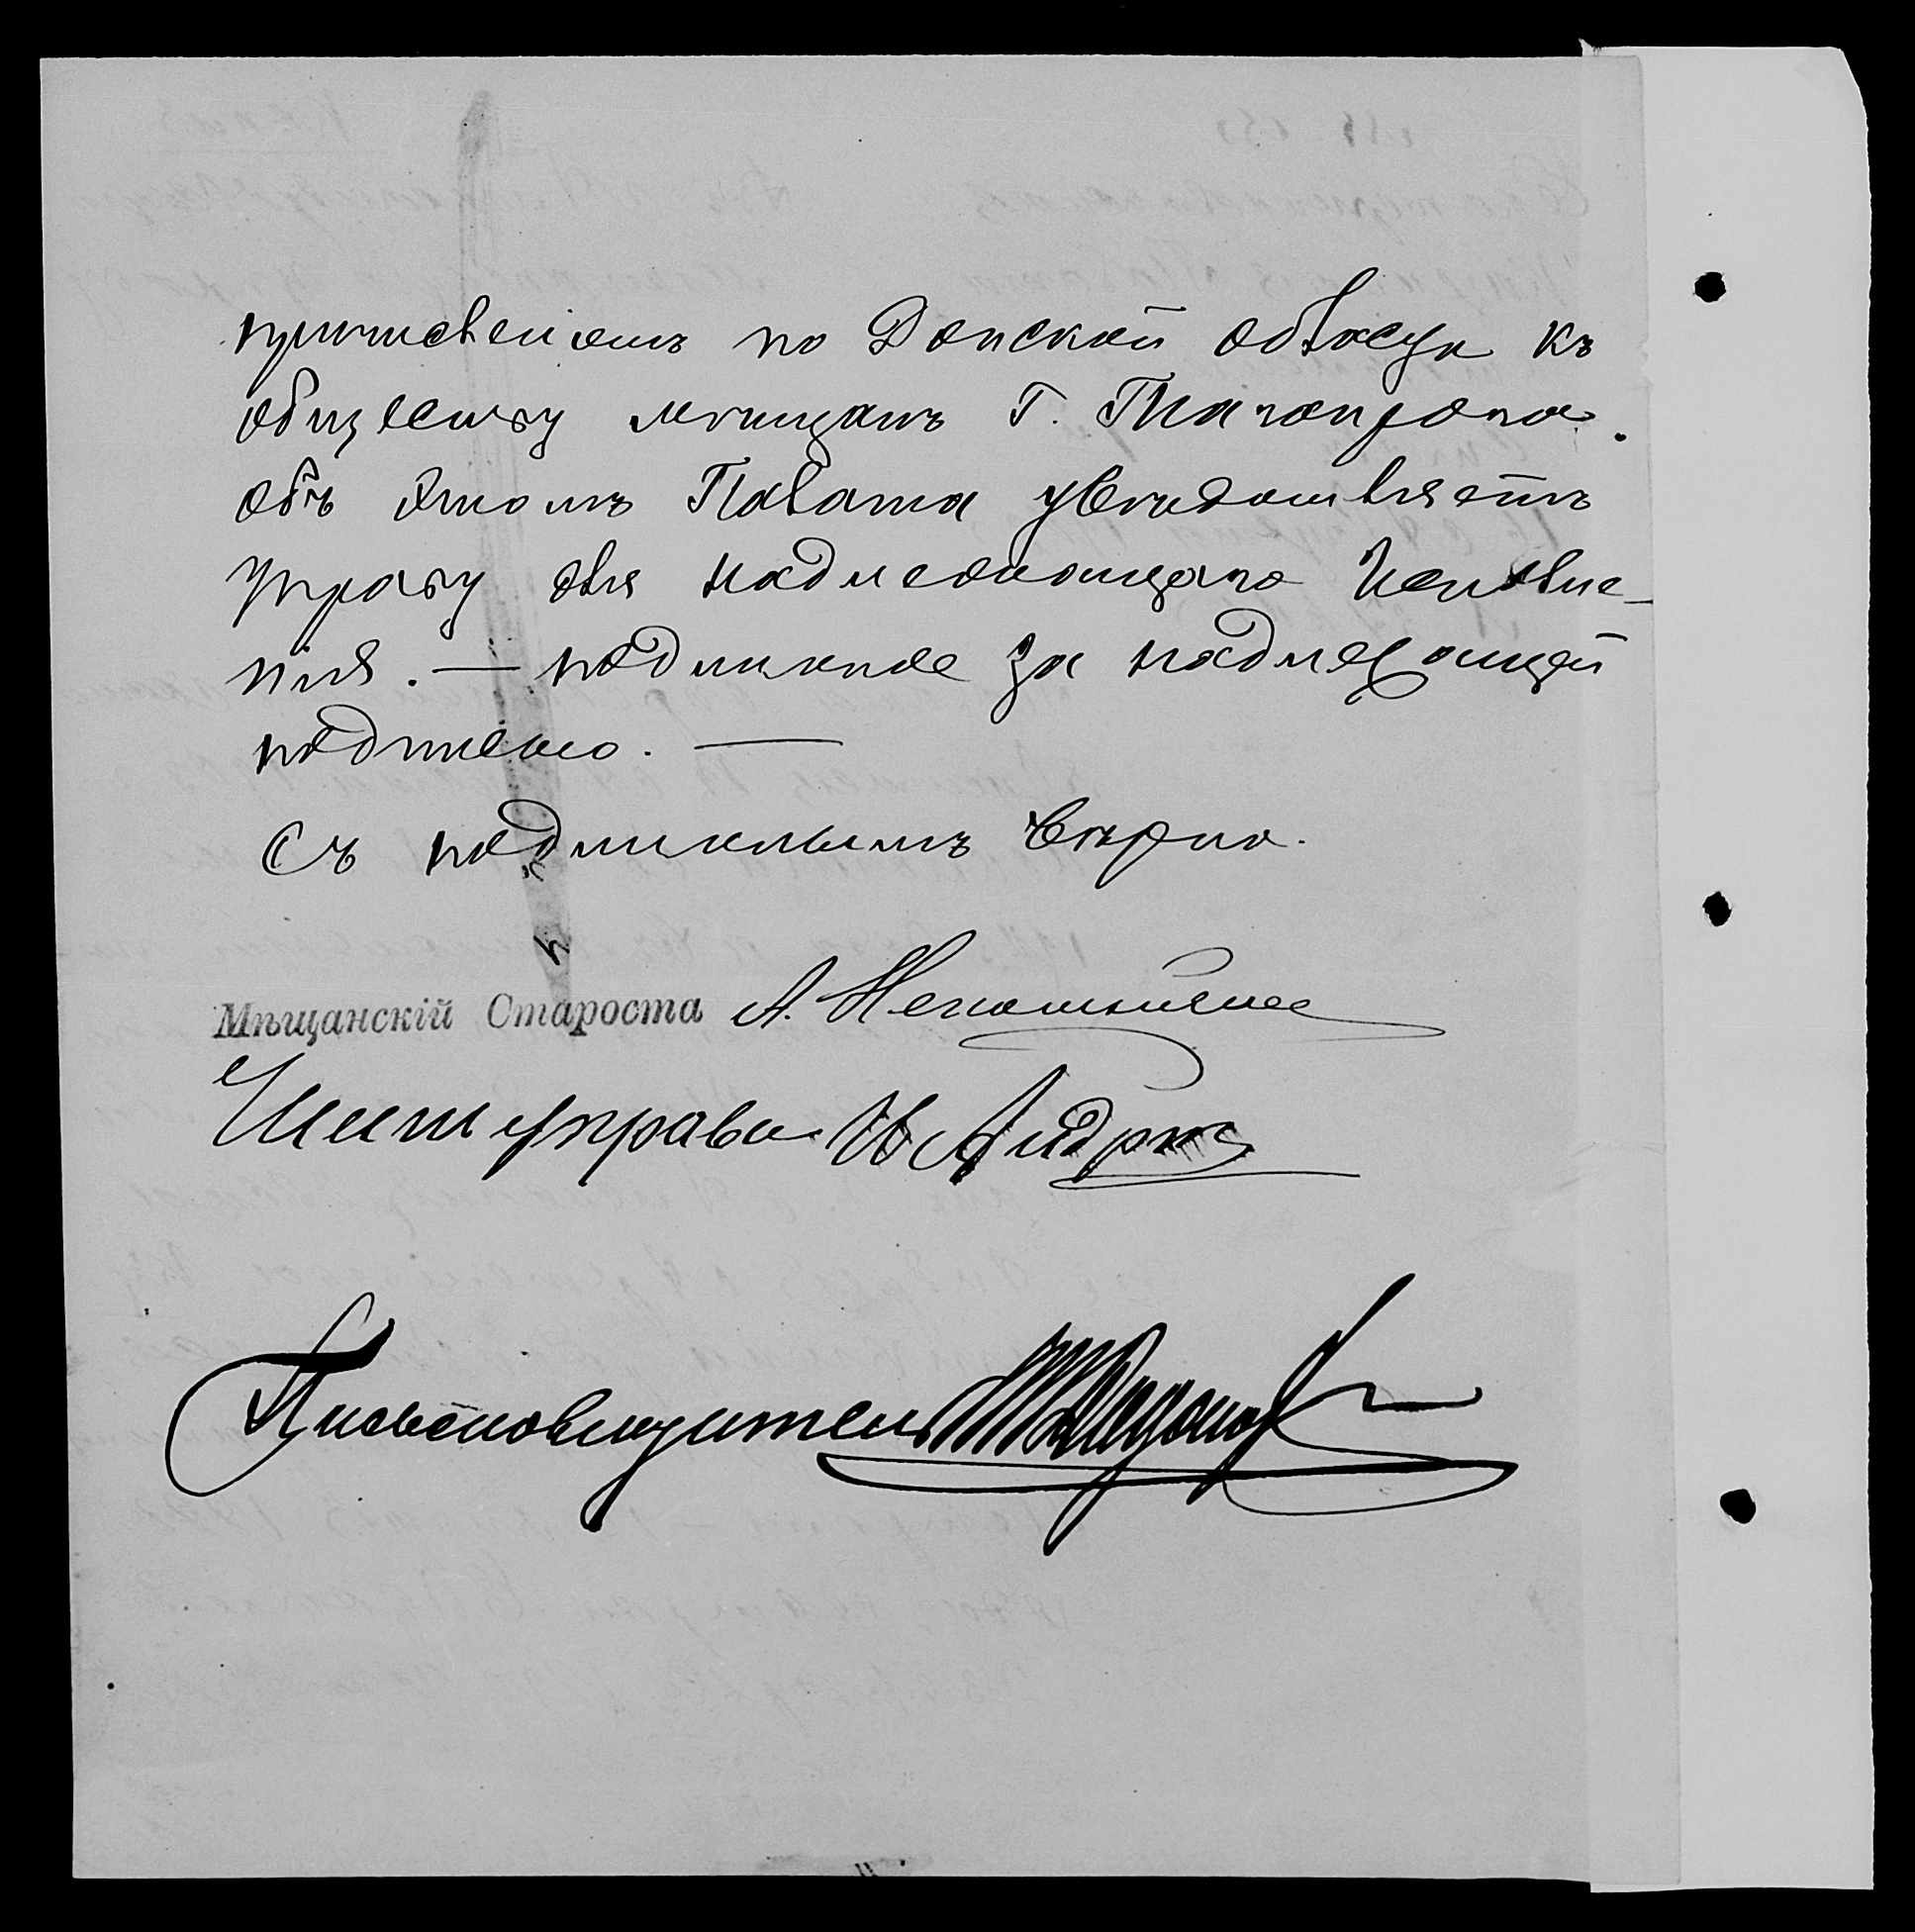 причисленіемъ по Донской области къ
обществу мѣщанъ г. Таганрога.
объ этомъ Палата увѣдомляетъ
Управу для надлежащаго исполне-
нія. — подлинное за надлежащей
подписью. —
Съ подлиннымъ вѣрно.
Мѣщанскій Староста А.
Членъ управы И
Письмоводитель